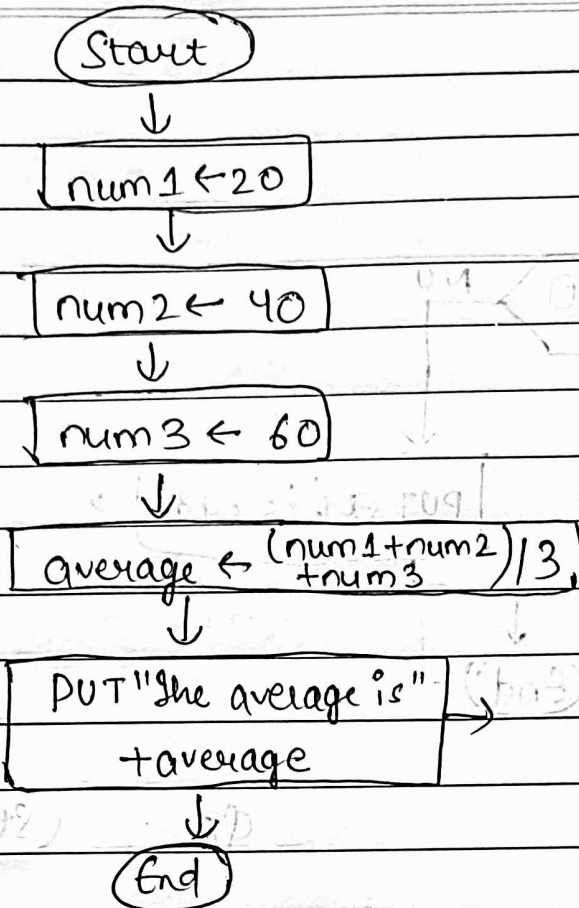 Start
num1 ← 20
num2 ← 40
num3 ← 60
average ← (num1+num2
+num3)/3
PUT "The average is"
+average
End